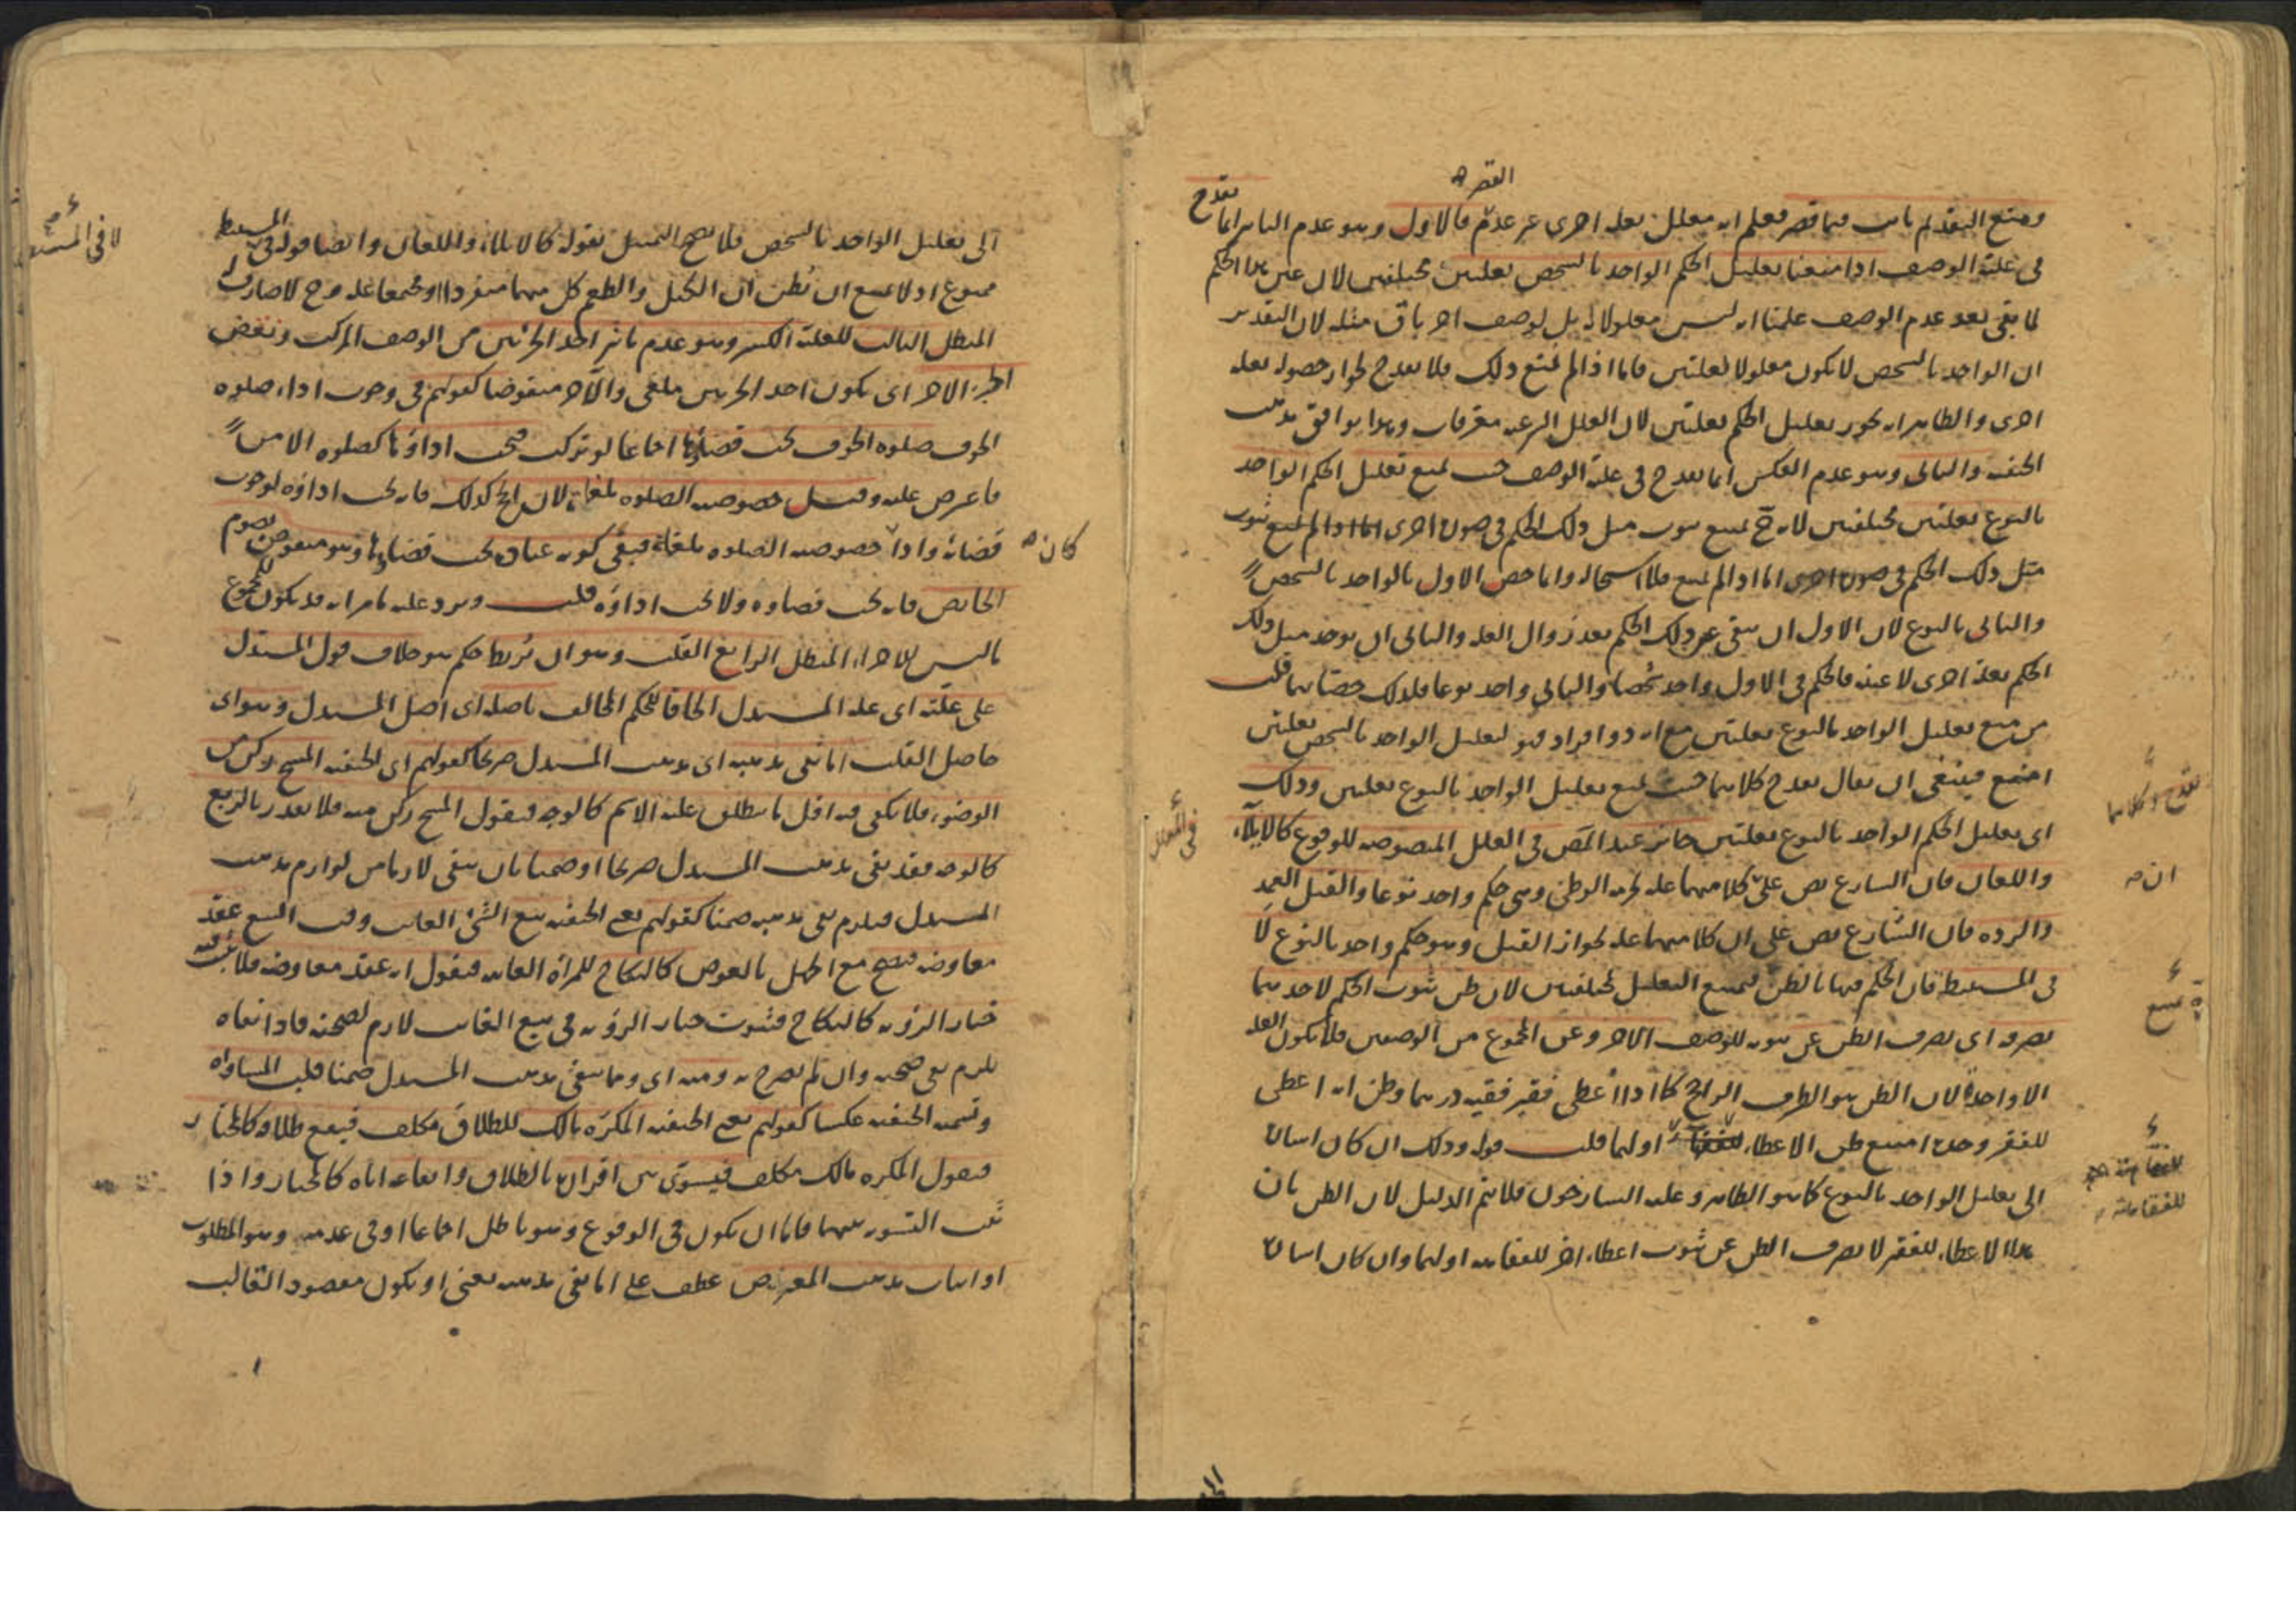 ومنع التقديم ثابت فيما قصر فعلم انه معلل بعلة اخرى غير عدم القصر فالاول وهو عدم التاثير انما يقدح
فى علية الوصف اذا منعنا تعليل الحكم الواحد بالشخص بعلتين مختلفتين لان عين هذا الحكم
لما بقى بعد عدم الوصف علمنا انه ليس معلولا له بل لوصف اخر باق مثله لان التقدير
ان الواحد بالشخص لا يكون معلولا لعلتين فاما اذا لم يمتنع ذلك فلا يقدح لجواز حصوله بعلة
اخرى والظاهر انه يجوز تعليل الحكم بعلتين لان العلل الشرعية معرفات وهذا يوافق مذهب
الحنفية والثانى وهو عدم العكس انما يقدح فى علية الوصف حيث يمنع تعليل الحكم الواحد
بالنوع بعلتين مختلفتين لانه ح يمتنع ثبوت مثل ذلك الحكم فى صورة اخرى اما اذا لم يمتنع ثبوت
مثل ذلك الحكم فى صورة اخرى اما اذا لم يمتنع فلا استحالة وانما خص الاول بالواحد بالشخص
والثانى بالنوع لان الاول ان يبقى عين ذلك الحكم بعد زوال العلة والثانى ان يوجد مثل ذلك
الحكم بعلة اخرى لا عينه فالحكم فى الاول واحد شخصا والثانى واحد نوعا فلذلك خصتا بهما قلت
من منع تعليل الواحد بالنوع بعلتين مع انه ذو افراد فهو لتعليل الواحد بالشخص بعلتين
امنع فينبغى ان يقال يقدح كلاهما حيث يمنع تعليل الواحد بالنوع بعلتين وذلك
اى تعليل الحكم الواحد بالنوع بعلتين جائز عند المص فى العلل المنصوصة للوقوع كالايلاء
واللعان فان الشارع نص على كلا منهما علة لحرمة الوطئ وهى حكم واحد نوعا والقتل العمد
والردة فان الشارع نص على ان كلا منهما علة لجواز القتل وهو حكم واحد بالنوع لا
فى المستنبطة فان الحكم فيها بالظن فيمتنع التعليل بمختلفتين لان ظن ثبوت الحكم لاحدهما
يصرفه اى يصرف الظن عن ثبوته للوصف الاخر وعن المجموع من الوصفين فلا يكون العلة
الا واحدة لان الظن هو الطرف الراجح كما اذا اعطى فقير فقيه درهما وظن انه اعطى
للفقر وحده امتنع ظن الاعطاء اولهما قلت قوله وذلك ان كان اشارة
الى تعليل الواحد بالنوع كما هو الظاهر وعليه الشارحون فلا يتم الدليل لان الظن بان
هذا الاعطاء للفقر لا يصرف الظن عن ثبوت اعطاء اخر للفقاهة اولهما وان كان اشارة
يقدح كلاهما
فى العلل
ان
يمتنع
للفقاهة
الى تعليل الواحد بالشخص فلا يصح التمثيل بقوله كالايلاء واللعان وايضا قوله فى المستنبطة
ممنوع اذ لا يمتنع ان يظن ان الكيل والطعم كل منهما منفردا او مجتمعا علة وح لا صارف له
المبطل الثالث للعلة الكسر وهو عدم تاثير احد الجزئين من الوصف المركب ونقض
الجزء الاخر اى يكون احد الجزئين ملغى والاخر منقوضا كقولهم فى وجوب اداء صلوة
الخوف صلوة الخوف يجب قضاؤها اجماعا لو تركت فيجب اداؤها كصلوة الامن
فاعترض عليه وقيل خصوصية الصلوة ملغاة لان الحج كذلك فانه يجب اداؤه لوجوب
قضائه واذا كان خصوصية الصلوة ملغاة فبقى كونه عبادة يجب قضاؤها وهو منقوض بصوم
الحائض فانه يجب قضاؤه ولا يجب اداؤه قلت ويرد عليه ما مر انه قد يكون للمجموع
ما ليس للاجزاء المبطل الرابع القلب وهو ان يربط حكم هو خلاف قول المستدل
على علته اى علة المستدل الحاقا للحكم المخالف باصله اى اصل المستدل وهو اى
حاصل القلب اما نفى مذهبه اى مذهب المستدل صريحا كقولهم اى الحنفية المسح ركن من
الوضوء فلا يكفى فيه اقل ما ينطلق عليه الاسم كالوجه فيقول المسح ركن منه فلا يقدر بالربع
كالوجه فقد نفى مذهب المستدل صريحا او ضمنا بان ينفى لازما من لوازم مذهب
المستدل فيلزم نفى مذهبه ضمنا كقولهم يعنى الحنفية بيع الشئ الغائب وقت البيع عقد
معاوضة فيصح مع الجهل بالعوض كالنكاح للمراة الغائبة فيقول انه عقد معاوضة فلا يثبت فيه
خيار الرؤية كالنكاح فثبوت خيار الرؤية فى بيع الغائب لازم لصحته فاذا نفاه
يلزم نفى صحته وان لم يصرح به ومنه اى ومما ينفى مذهب المستدل ضمنا قلب المساواة
وتسميه الحنفية عكسا كقولهم يعنى الحنفية المكره مالك للطلاق مكلف فيقع طلاقه كالمختار
فيقول المكره مالك مكلف فيسوى بين اقراره بالطلاق وايقاعه اياه كالمختار واذا
ثبت التسوية بينهما فاما ان يكون فى الوقوع وهو باطل اجماعا او فى عدمه وهو المطلوب
او اثبات مذهب المعترض عطف على اما نفى مذهبه يعنى او يكون مقصود القالب
لا فى المستنبطة